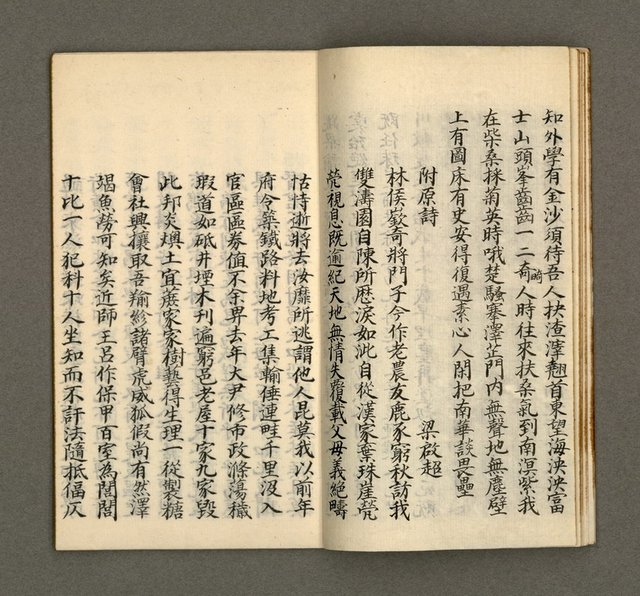 知外學有金沙須待吾人扶渣滓翹首東望海泱泱富
士山頭峯齒齒一二奇畸人時往來扶桑氣到南溟紫我
在柴桑採菊英時哦楚騷搴澤芷門內無聲地無塵壁
上有圖床有史安得復遇素心人閒把南華談畏壘
附原詩 梁啟超
林侯嶔奇將門子今作老農友鹿豕窮秋訪我
雙濤園自陳所歷淚如泚自從漢家葉珠崖煢
煢視息既逾紀天地無情失覆載父母義絕疇
怙恃逝將去汝靡所逃謂他人昆莫我以前年
府令築鐵路料地考工集輸倕連畦千里沒入
官區區券值不余畀去年大尹修市政滌蕩穢
瑕道如砥井堙木刊遍窮邑老屋十家九家毀
此邦炎燠土宜蔗家家樹藝得生理一從製糖
會社興攘取吾羭紾諸臂虎威狐假尚有然澤
竭魚勞可知矣近師王呂作保甲百室為閭閭
十比一人犯科十人坐知而不訐法隨抵偪仄